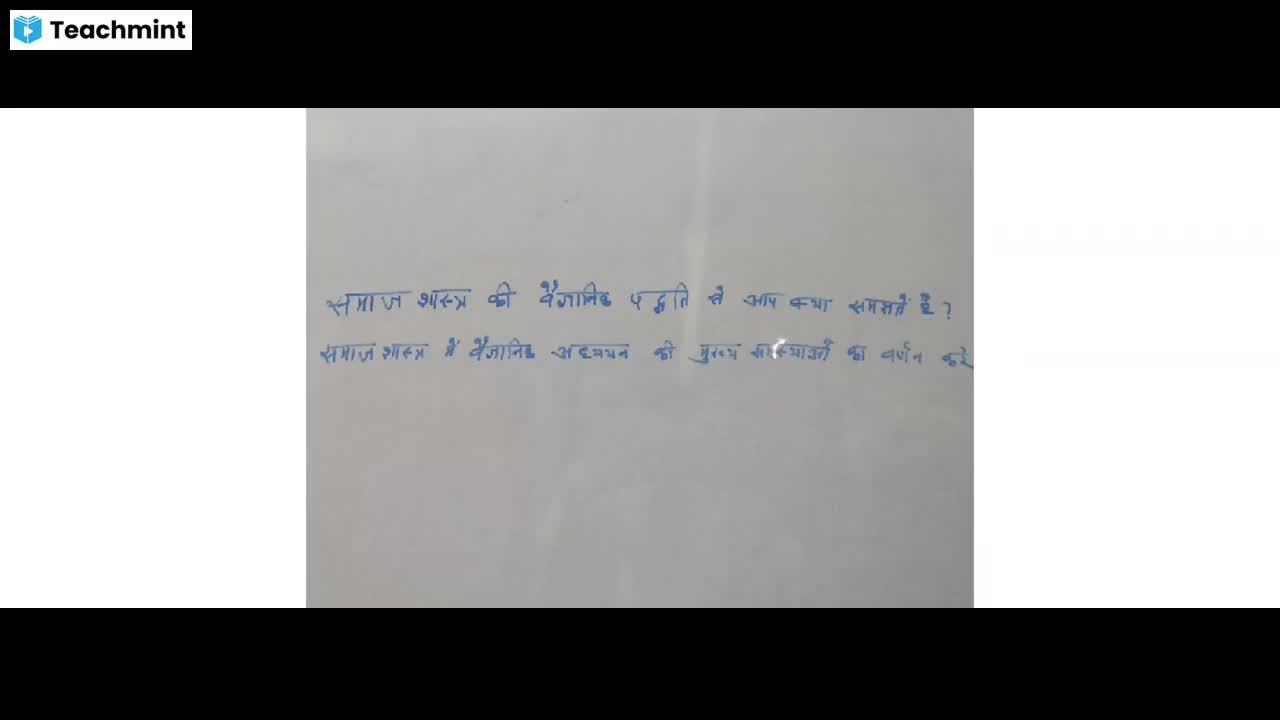 Teachmint
समाज शास्त्र की वैज्ञानिक पद्धति से आप क्या समझतें है ?
समाज शास्त्र में वैज्ञानिक अध्ययन की मुख्य का वर्णन करे